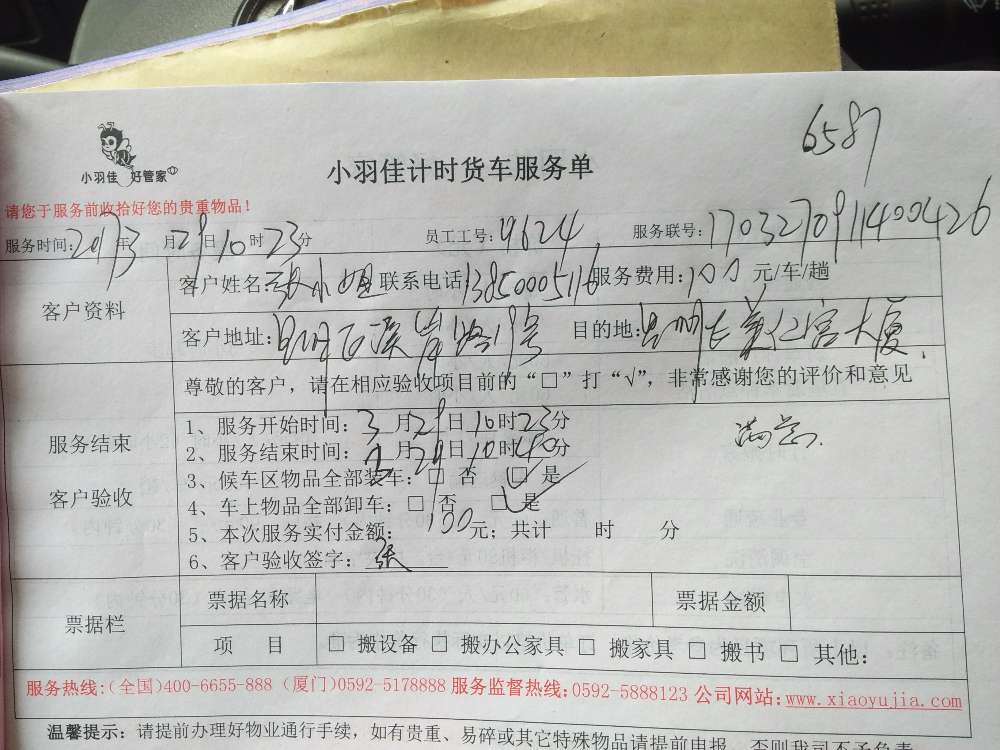 6587
小羽佳 好管家
小羽佳计时货车服务单
请您于服务前收拾好您的贵重物品！
服务时间：2017年3月29日10时23分 员工工号：19624 服务联号：1703270911400426
客户资料
客户姓名：张小姐 联系电话 13850005116 服务费用：100 元/车/趟
客户地址： 目的地： 大厦
尊敬的客户，请在相应验收项目前的“□”打“√”，非常感谢您的评价和意见
服务结束
客户验收
1、服务开始时间：3月29日10时23分
满意
2、服务结束时间：3月29日10时40分
3、候车区物品全部装车：□ 否 □ 是
4、车上物品全部卸车：□ 否 □ 是
5、本次服务实付金额：100元；共计 时 分
6、客户验收签字：张
票据栏
票据名称 票据金额
项 目 □ 搬设备 □ 搬办公家具 □ 搬家具 □ 搬书 □ 其他：
服务热线：(全国)400-6655-888 (厦门)0592-5178888 服务监督热线：0592-5888123 公司网站：www.xiaoyujia.com
温馨提示：请提前办理好物业通行手续，如有贵重、易碎或其它特殊物品请提前申报，否则我司不予负责